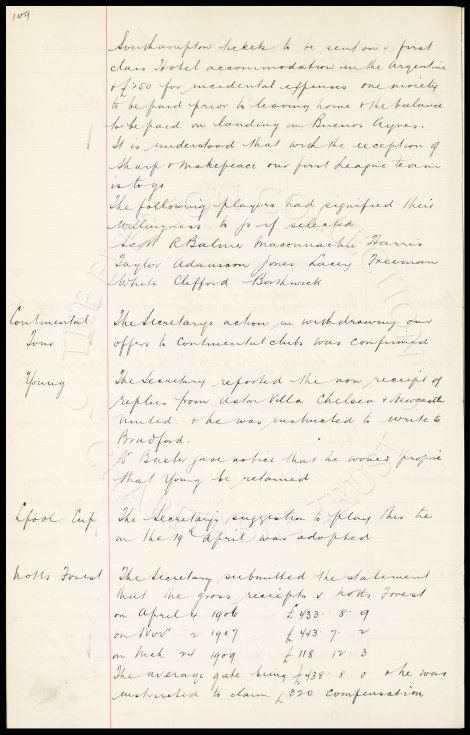 109
Southampton tickets to be sent on & first
class Hotel accommodation in the Argentine
& £250 for incidental expenses one moiety
to be paid prior to leaving home & the balance
to be paid on landing in Buenos Ayres.
It is understood that with the exception of
Sharp & Makepeace our first League team
is to go
The following players had signified their
willingness to go if selected
Scott R Balmer Maconnachie Harris
Taylor Adamson Jones Lacey Freeman
White Clifford Borthwick
Continental Tour
The Secretarys action in withdrawing our
offers to Continental clubs was confirmed
Young
The Secretary reported the non receipt of
replies from Aston Villa Chelsea & Newcastle
United. & he was instructed to write to
Bradford.
Dr Baxter gave notice that he would propose
that Young be retained
Lpool Cup
The Secretary's suggestion to play this tie
on the 19th April was adopted
Notts Forest
The Secretary submitted the statement
that the gross receipts v Notts Forest
on April 4 1906 £433. 8. 9
on Nov 2 1907 £443. 7. 2
on Mch 24 1909 £118. 12. 3
The average gate being £438. 8. 0 & he was
instructed to claim £320 compensation